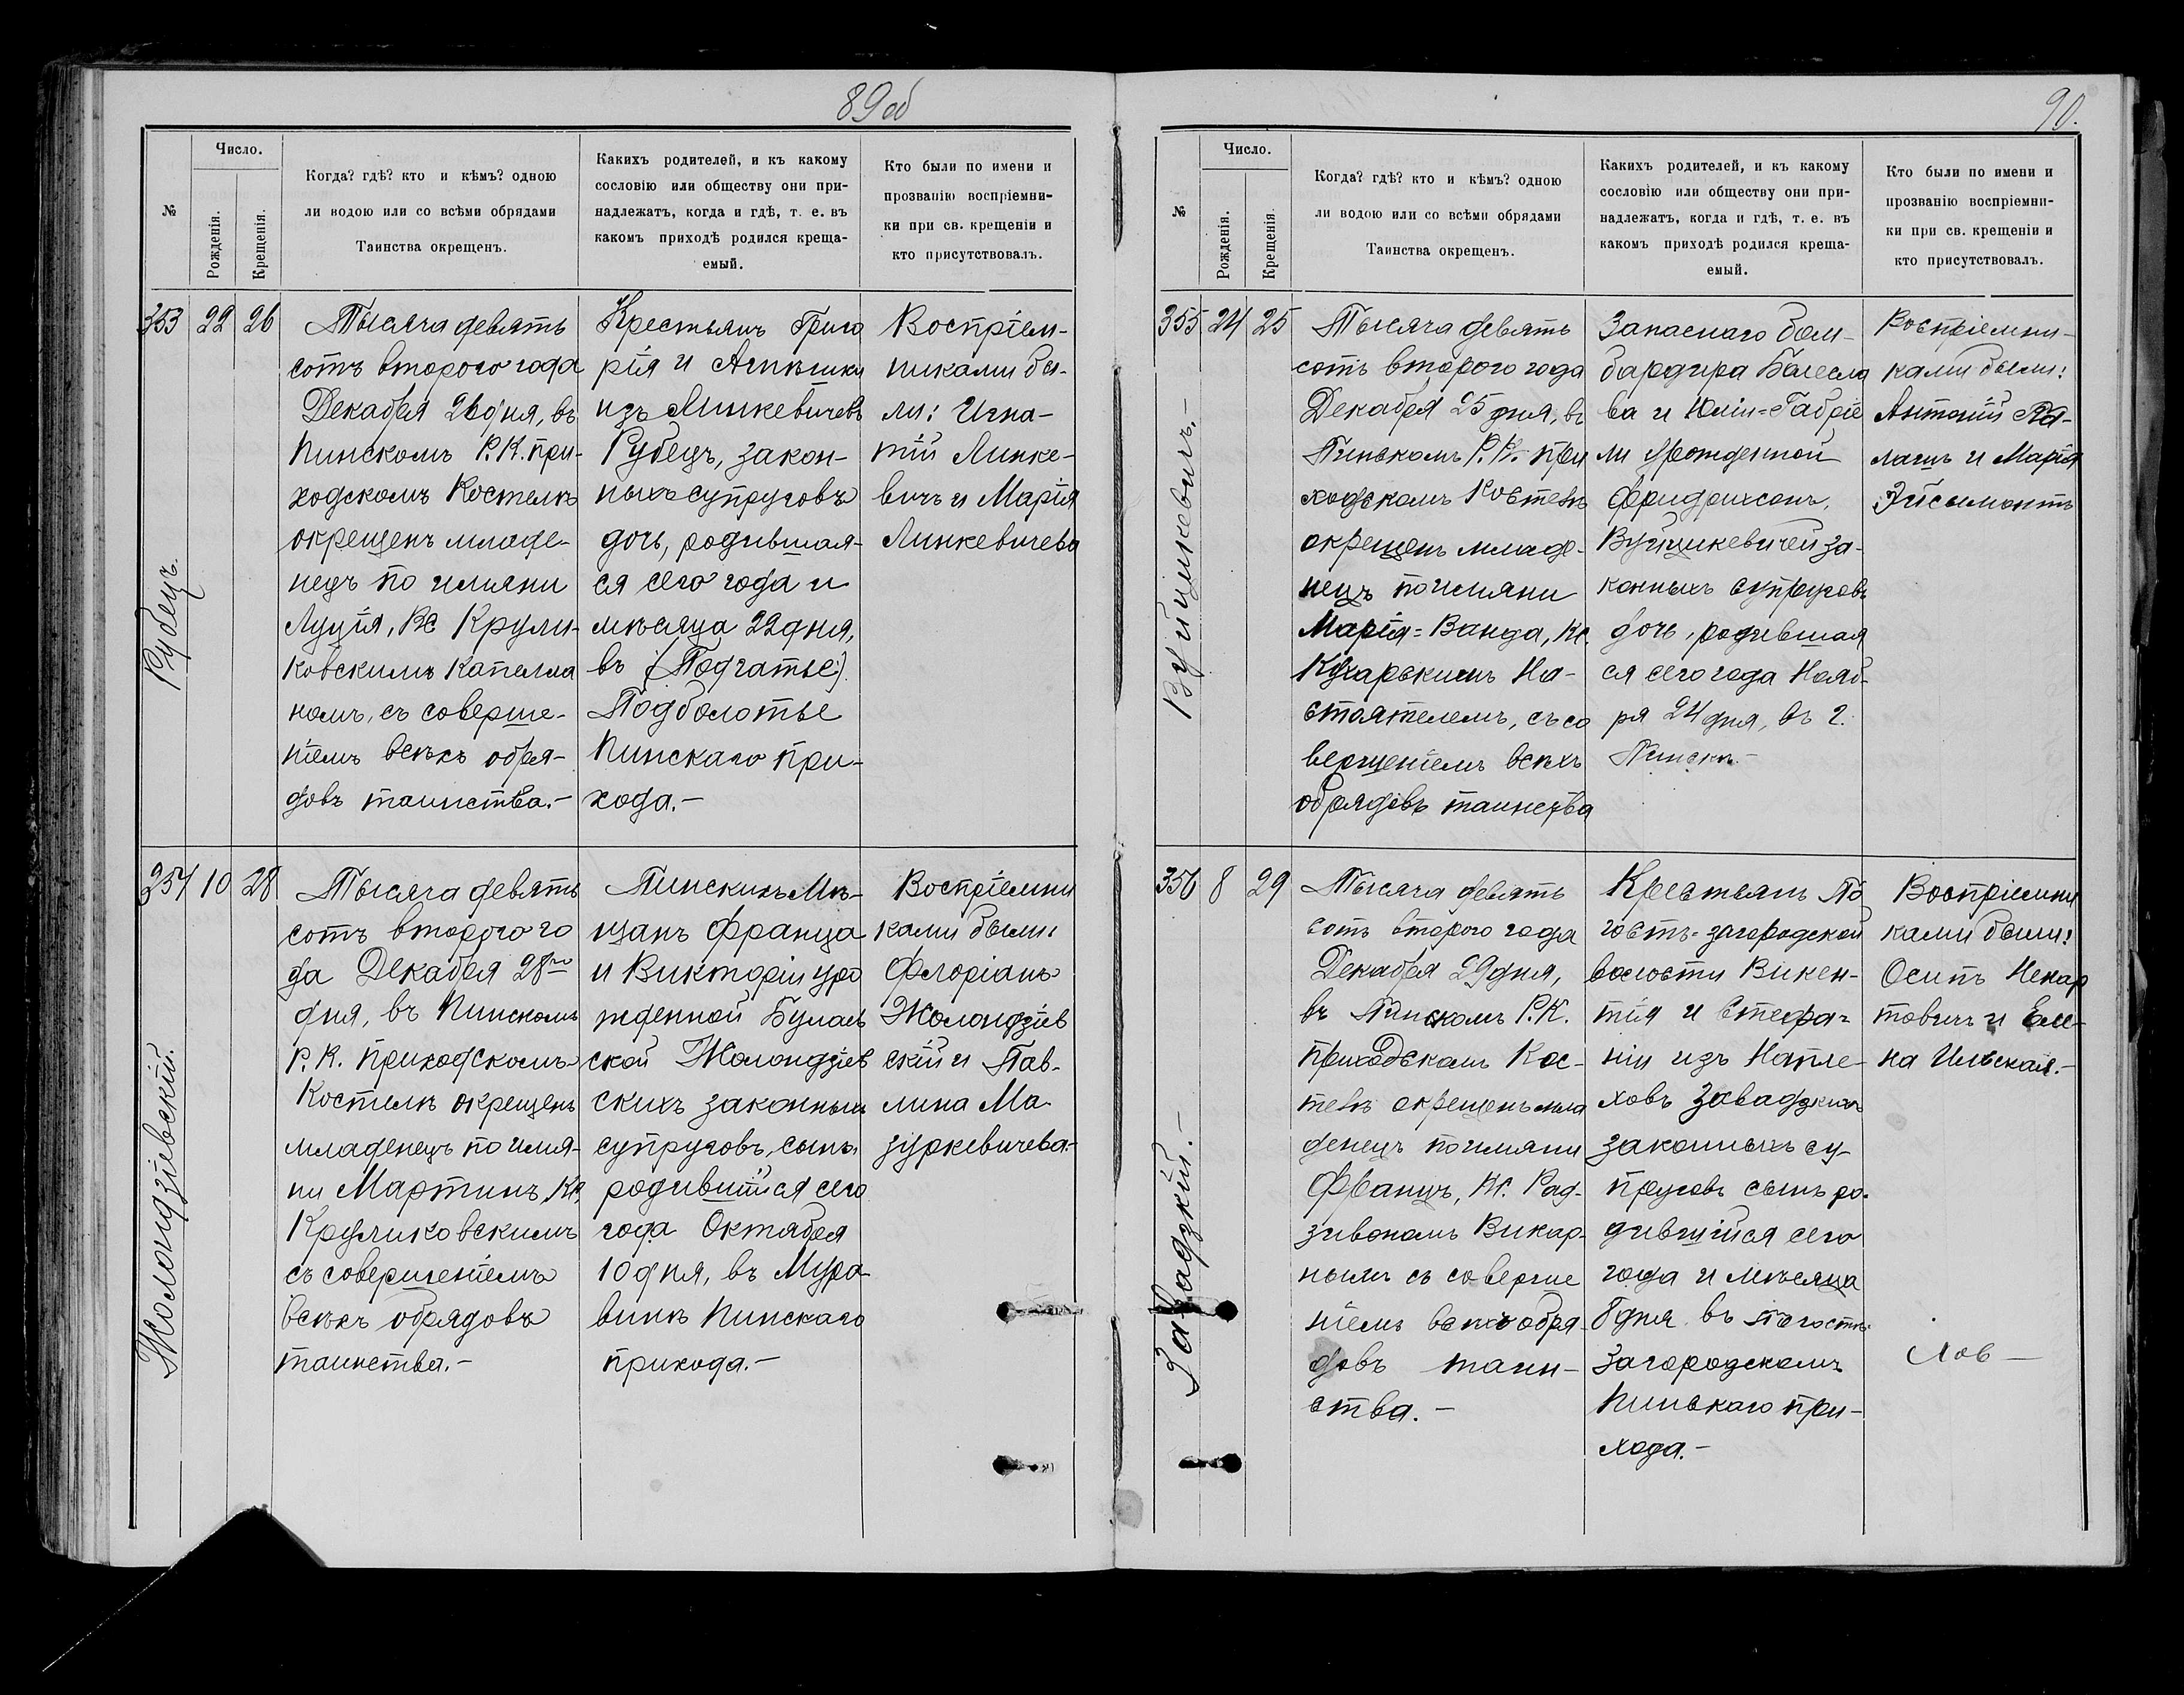 89об
№
Число.
Рожденія.
Крещенія.
Когда? гдѣ? кто и кѣмъ? одною
ли водою или со всѣми обрядами
Таинства окрещенъ.
Какихъ родителей, и къ какому
сословію или обществу они при-
надлежатъ, когда и гдѣ, т. е. въ
какомъ приходѣ родился креща-
емый.
Кто были по имени и
прозванію воспріемни-
ки при св. крещеніи и
кто присутствовалъ.
353
22
26
Рубецъ.
Тысяча девять
сотъ второго года
Декабря 26 дня, въ
Пинскомъ Р.К. при-
ходскомъ Костелѣ
окрещенъ младе-
нецъ по имяни
Луція, Кс Крули-
ковскимъ Капелла
номъ, съ соверше-
ніемъ всѣхъ обря-
довъ таинства.-
Крестьянъ Григо
рія и Агнѣшки
изъ Линкевичевъ
Рубецъ, закон-
ныхъ супруговъ
дочь, родившая-
ся сего года и
мѣсяца 22 дня,
въ (Подгатье)
Подболотье
Пинскаго при-
хода.-
Воспріем-
никами бы-
ли: Игна-
тій Линке-
вичъ и Марія
Линкевичева
354
10
28
Жолондзіевскій.
Тысяча девять
сотъ второго го
да Декабря 28го
дня, въ Пинскомъ
Р. К. приходскомъ
Костелѣ окрещенъ
младенецъ по имя-
ни Мартинъ, Кс.
Круликовскимъ
съ совершеніемъ
всѣхъ обрядовъ
таинства.-
Пинскихъ Мѣ-
щанъ Франца
и Викторіи уро
жденной Булав
ской Жолондзіев
скихъ законныхъ
супруговъ, сынъ
родившійся сего
года Октября
10 дня, въ Мура
винѣ Пинскаго
прихода.-
Воспріемни
ками были:
Флоріанъ
Жолондзіев
скій и Пав-
лина Ма-
зуркевичева.-
90.
№
Число.
Рожденія.
Крещенія.
Когда? гдѣ? кто и кѣмъ? одною
ли водою или со всѣми обрядами
Таинства окрещенъ.
Какихъ родителей, и къ какому
сословію или обществу они при-
надлежатъ, когда и гдѣ, т. е. въ
какомъ приходѣ родился креща-
емый.
Кто были по имени и
прозванію воспріемни-
ки при св. крещеніи и
кто присутствовалъ.
355
24
25
Вуйцикевичъ.-
Тысяча девять
сотъ второго года
Декабря 25 дня, въ
Пинскомъ Р.К. при
ходскомъ Костелѣ
окрещенъ младе-
нецъ по имяни
Марія=Ванда, Кс.
Кухарскимъ На-
стоятелемъ, съ со
вершеніемъ всѣхъ
обрядовъ таинства
Запаснаго бом-
бардира Болесла
ва и Юліи=Габріе
ли урожденной
Фридрихсонъ,
Вуйцикевичей за-
конныхъ супруговъ
дочь, родившая
ся сего года Нояб-
ря 24 дня, въ г.
Пинскѣ.-
Воспріемни-
ками были:
Антоній
и Марія
Эйсымонтъ
356
8
29
Завадзкій.-
Тысяча девять
сотъ второго года
Декабря 29 дня,
въ Пинскомъ Р.К.
приходскомъ Кос-
телѣ окрещенъ мла
денецъ по имяни
Францъ, Кс. Рад-
зивономъ Викар-
нымъ съ соверше
ніемъ всѣхъ обря-
довъ таин-
ства.-
Крестьянъ По
гостъ=загородской
волости Викен-
тія и Стефа=
ніи изъ Напле-
ховъ Завадзкихъ
законныхъ су-
пруговъ сынъ ро-
дившійся сего
года и мѣсяца
8 дня въ Погостѣ
Загородскомъ
Пинскаго при-
хода.-
Воспріемни
ками были:
Осипъ Ненар
товичъ и Еле-
на Ильская.-